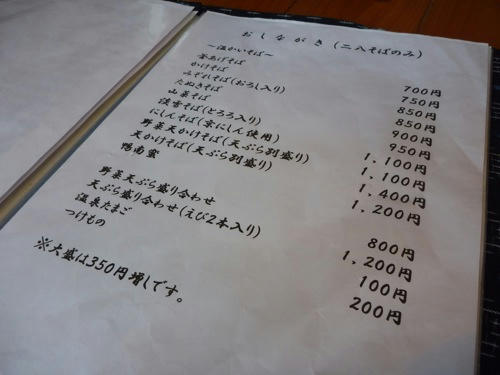 おしながき(二八そばのみ)
～温かいそば～
釜あげそば 700円
かけそば 750円
みぞれそば(おろし入り) 850円
たぬきそば 850円
山菜そば 900円
淡雪そば(とろろ入り) 950円
にしんそば(京にしん使用) 1,100円
野菜天かけそば(天ぷら別盛り) 1,100円
天かけそば(天ぷら別盛り) 1,400円
鴨南蛮 1,200円
野菜天ぷら盛り合わせ 800円
天ぷら盛り合わせ(えび2本入り) 1,200円
温泉たまご 100円
つけもの 200円
※大盛は350円増しです。